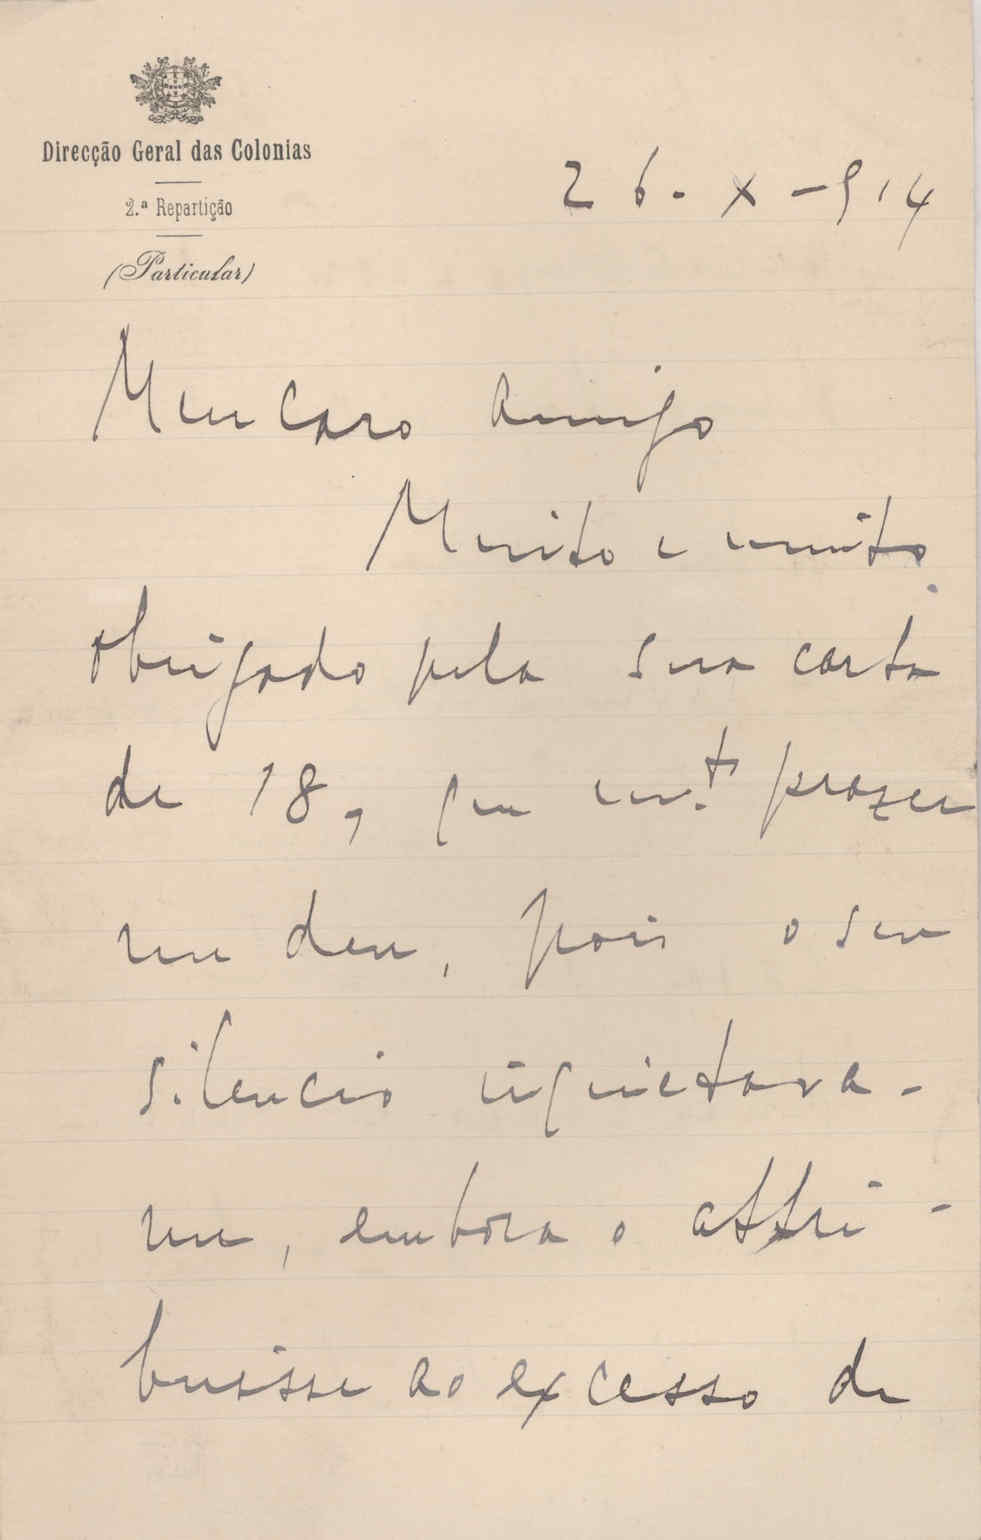 Direcção Geral das Colonias
2.ª Repartição
(Particular)
26-X-914
Meu caro amigo
Muito e muito
obrigado pela sua carta
de 18, que m.to prazer
me deu, pois o seu
silencio inquietava-
me, embora o attri-
buisse ao excesso de